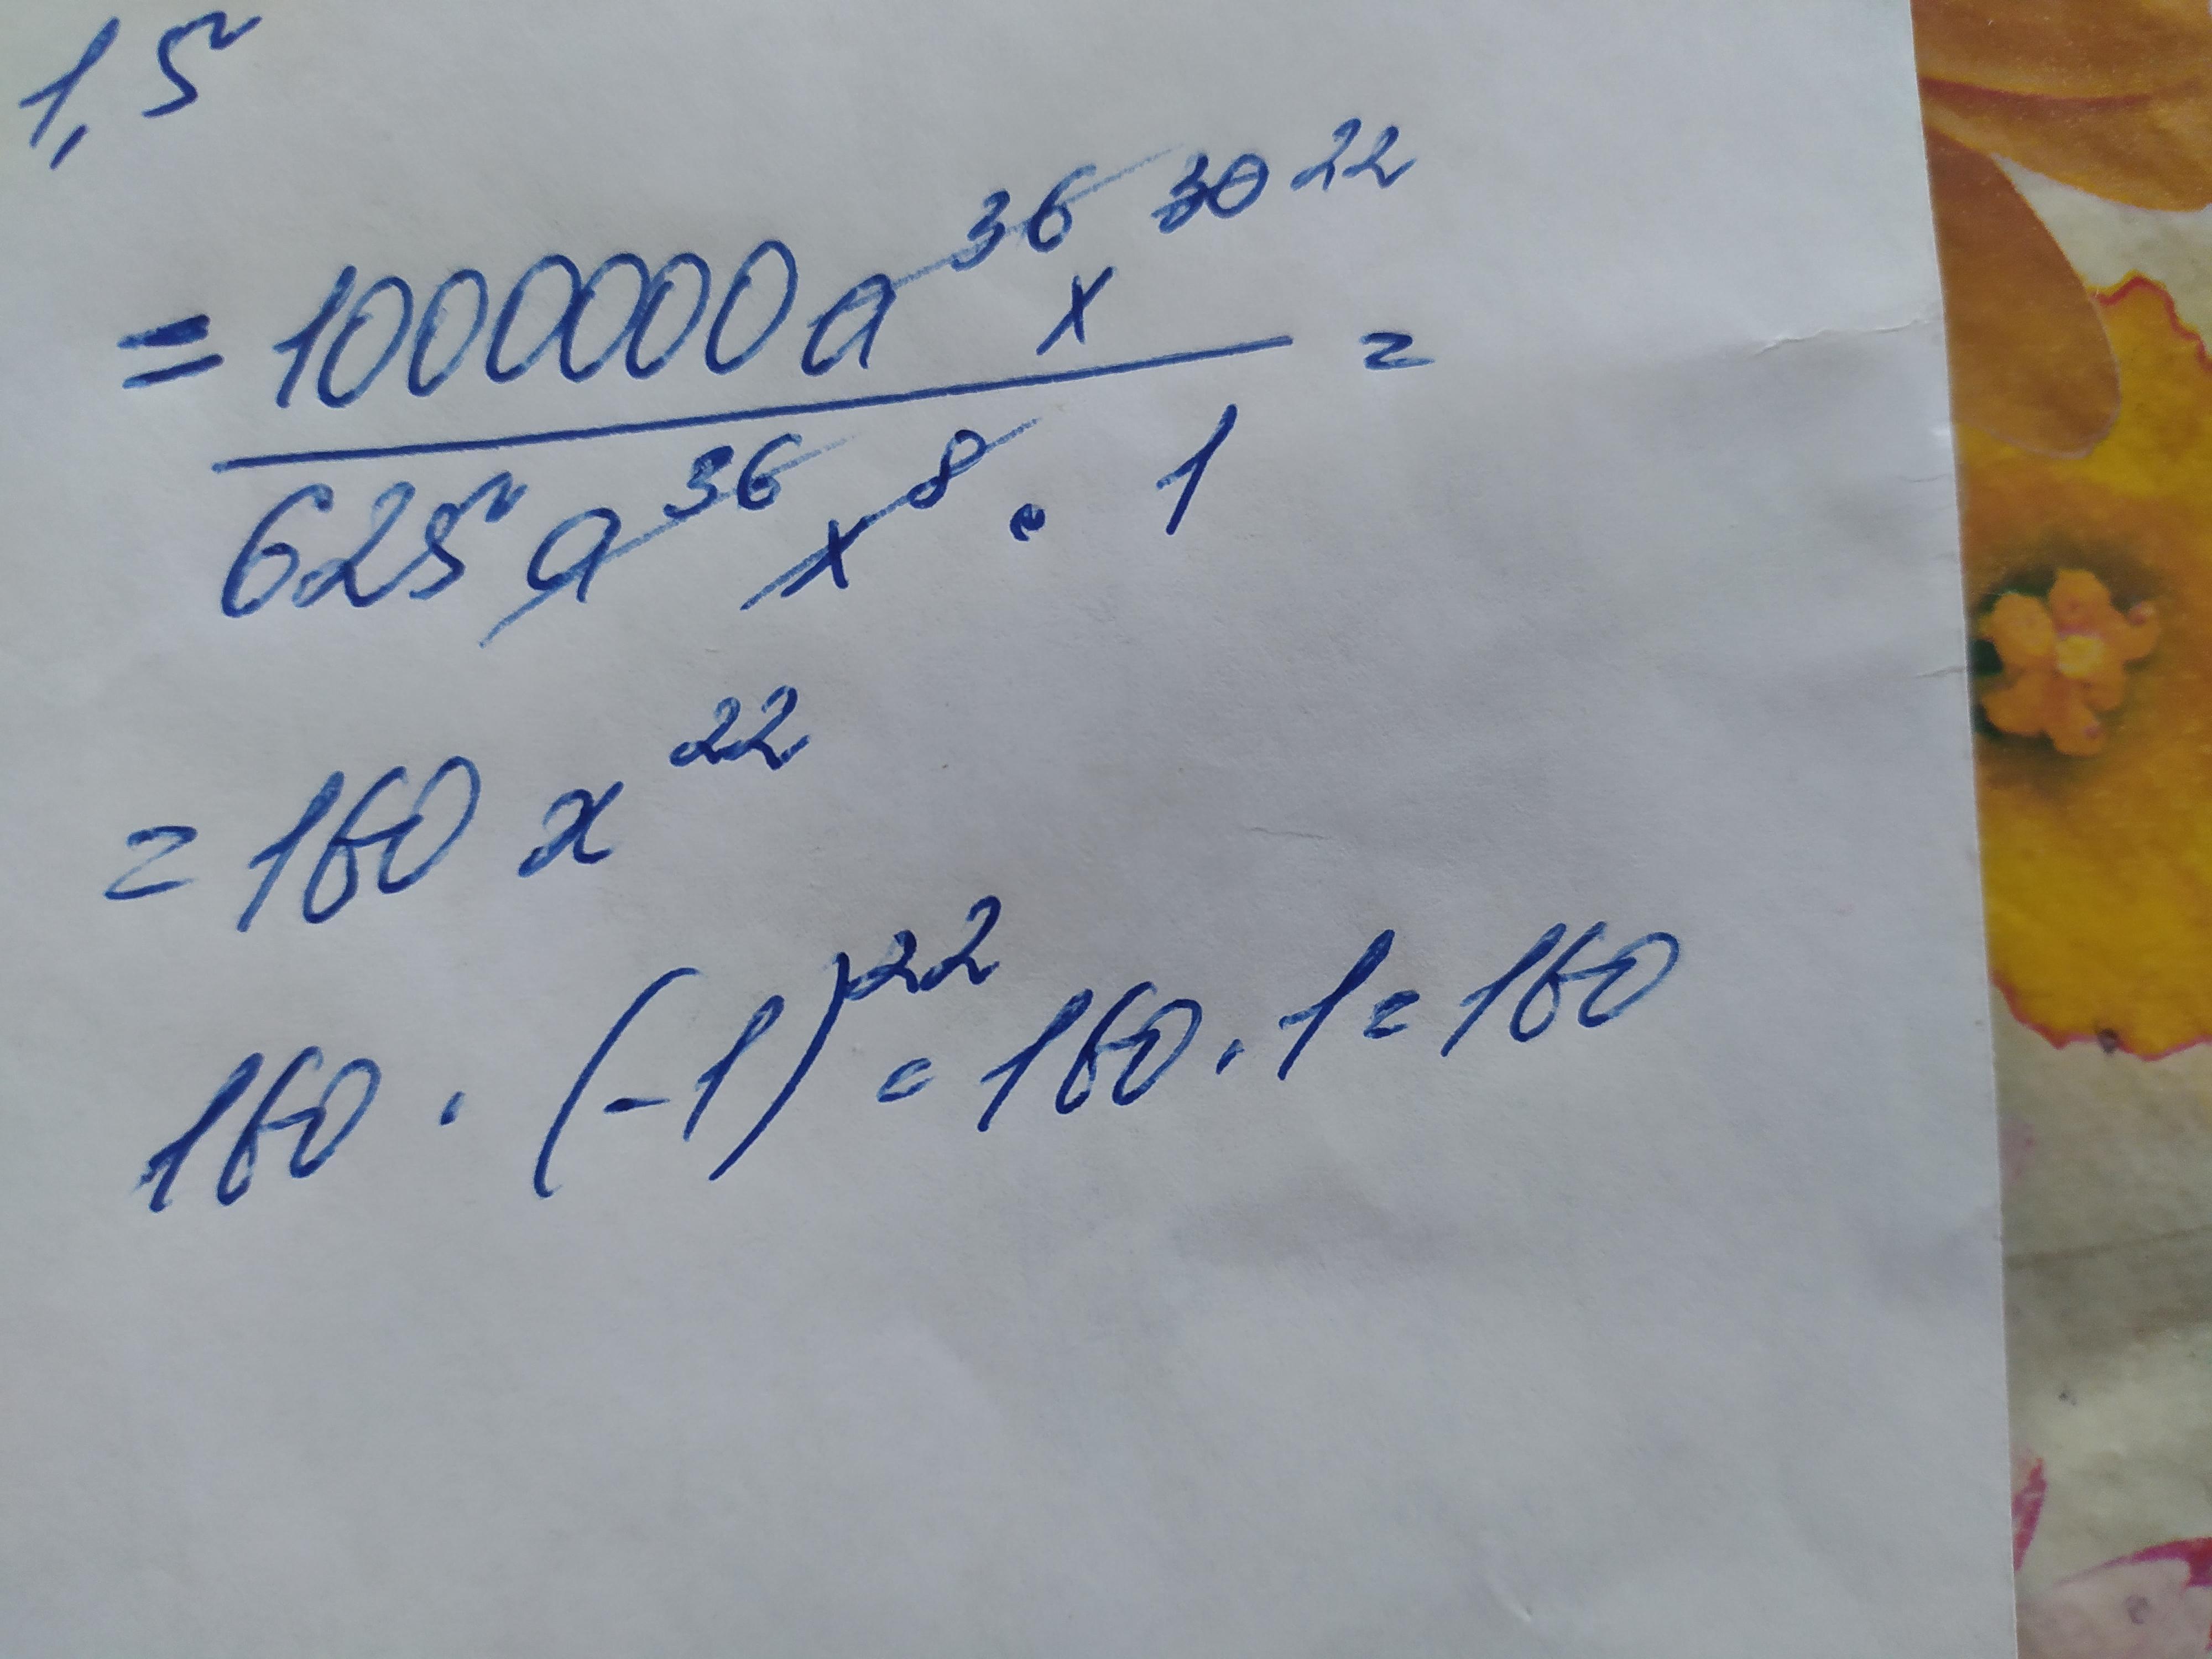 1,5
= 1000000 a^36 x^30 22 / 625 a^36 x^8 · 1 =
= 160 x^22
160 · (-1)^22 = 160 · 1 = 160